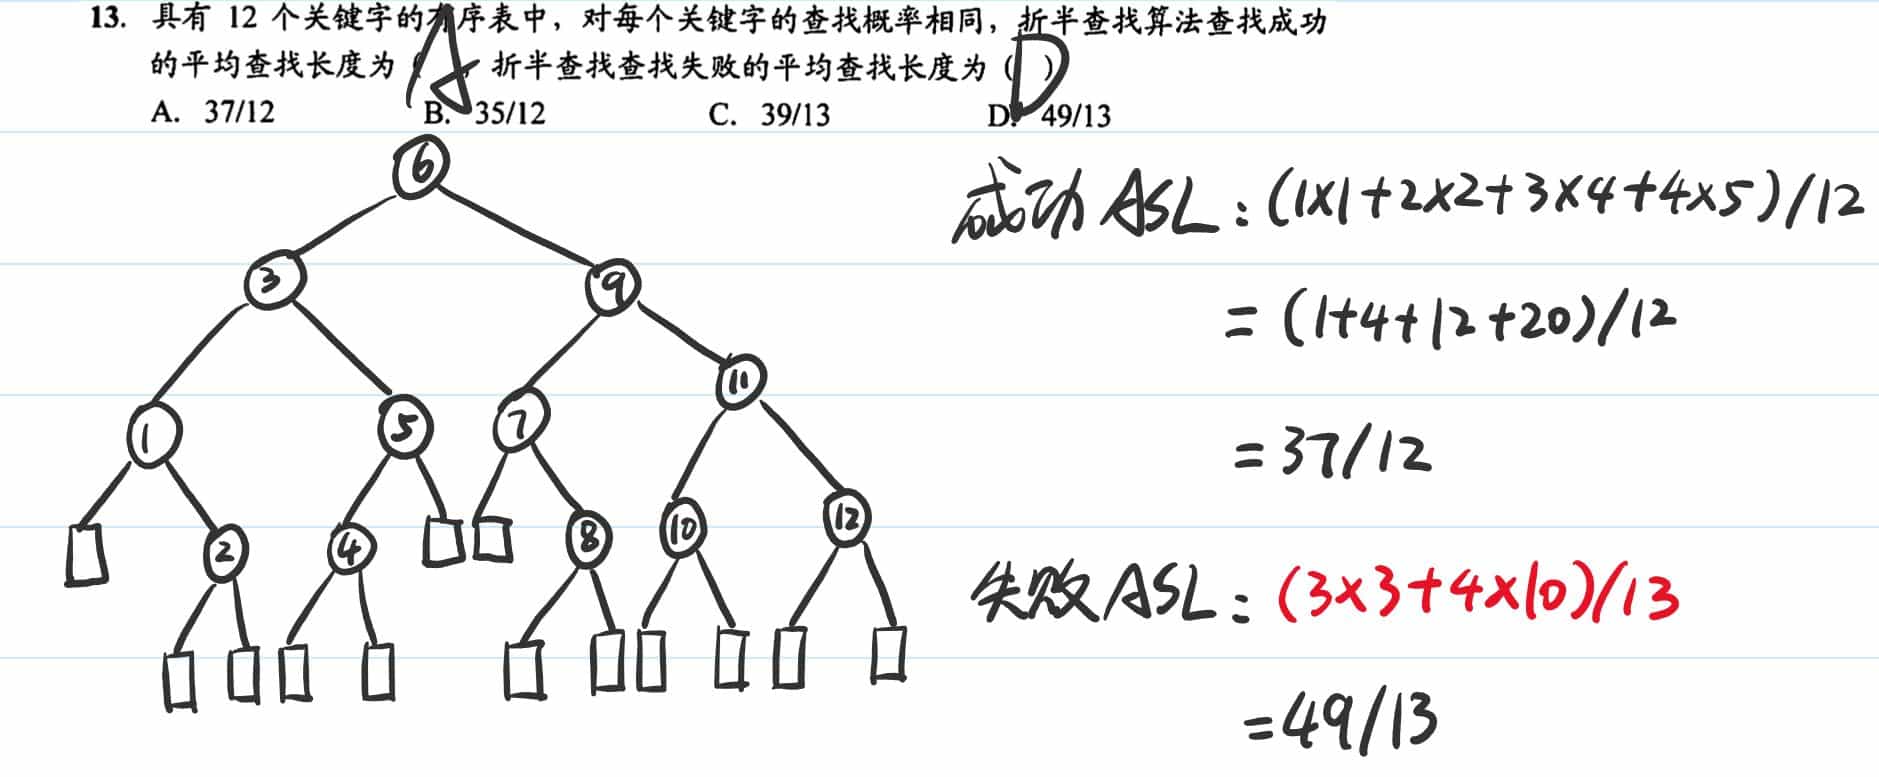 13. 具有 12 个关键字的有序表中，对每个关键字的查找概率相同，折半查找算法查找成功
的平均查找长度为（A），折半查找查找失败的平均查找长度为（D）
A. 37/12 B. 35/12 C. 39/13 D. 49/13
6
3 9
11
1 5 7
2 4 8 10 12
成功ASL：(1×1+2×2+3×4+4×5)/12
=(1+4+12+20)/12
=37/12
失败ASL：(3×3+4×10)/13
=49/13